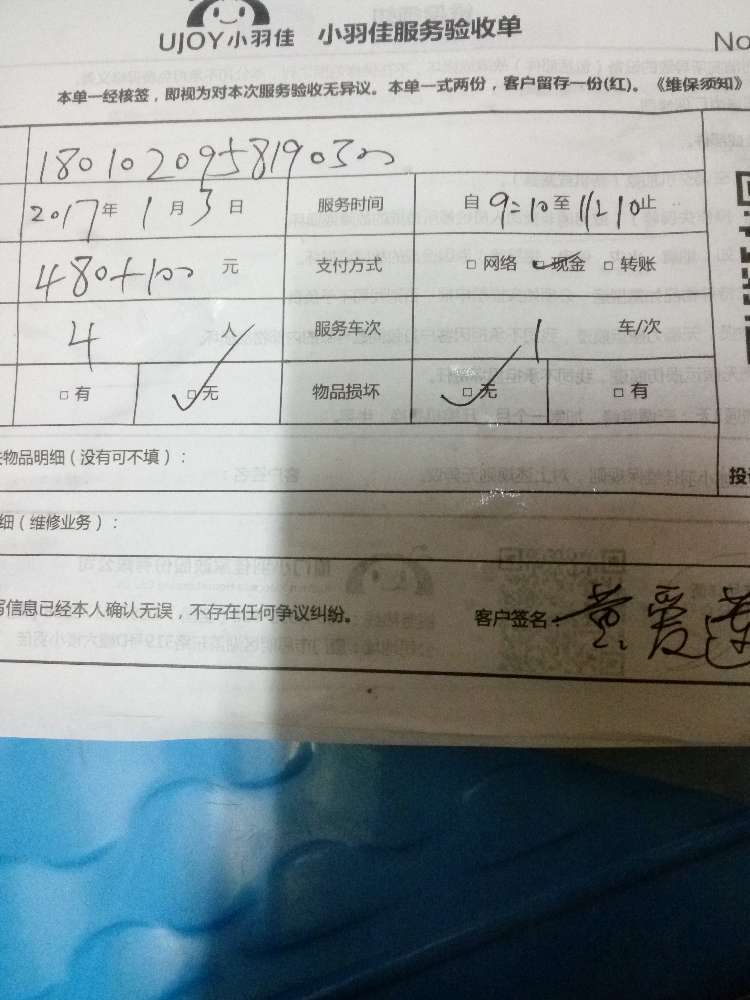 UJOY小羽佳 小羽佳服务验收单
No
本单一经核签，即视为对本次服务验收无异议。本单一式两份，客户留存一份(红)。《维保须知》
2017年1月3日 服务时间 自9:10至11:10止
480+100元 支付方式 □网络 ☑现金 □转账
4人 服务车次 1车/次
□有 ☑无 物品损坏 ☑无 □有
物品明细（没有可不填）：
投
细（维修业务）：
写信息已经本人确认无误，不存在任何争议纠纷。 客户签名：黄爱莲